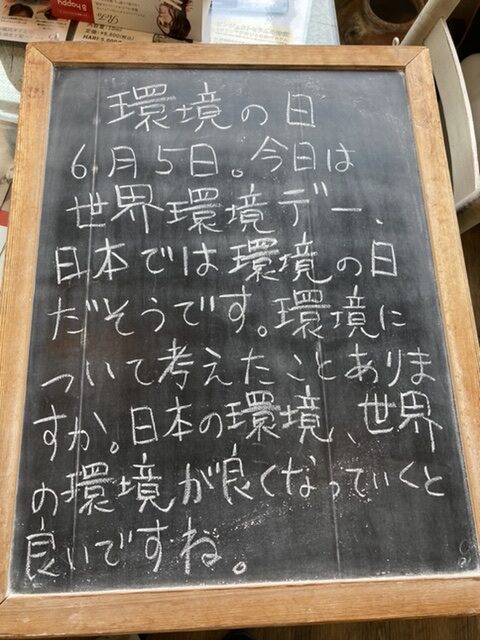 環境の日
6月5日。今日は
世界環境デー、
日本では環境の日
だそうです。環境に
ついて考えたことありま
すか。日本の環境、世界
の環境が良くなっていくと
良いですね。